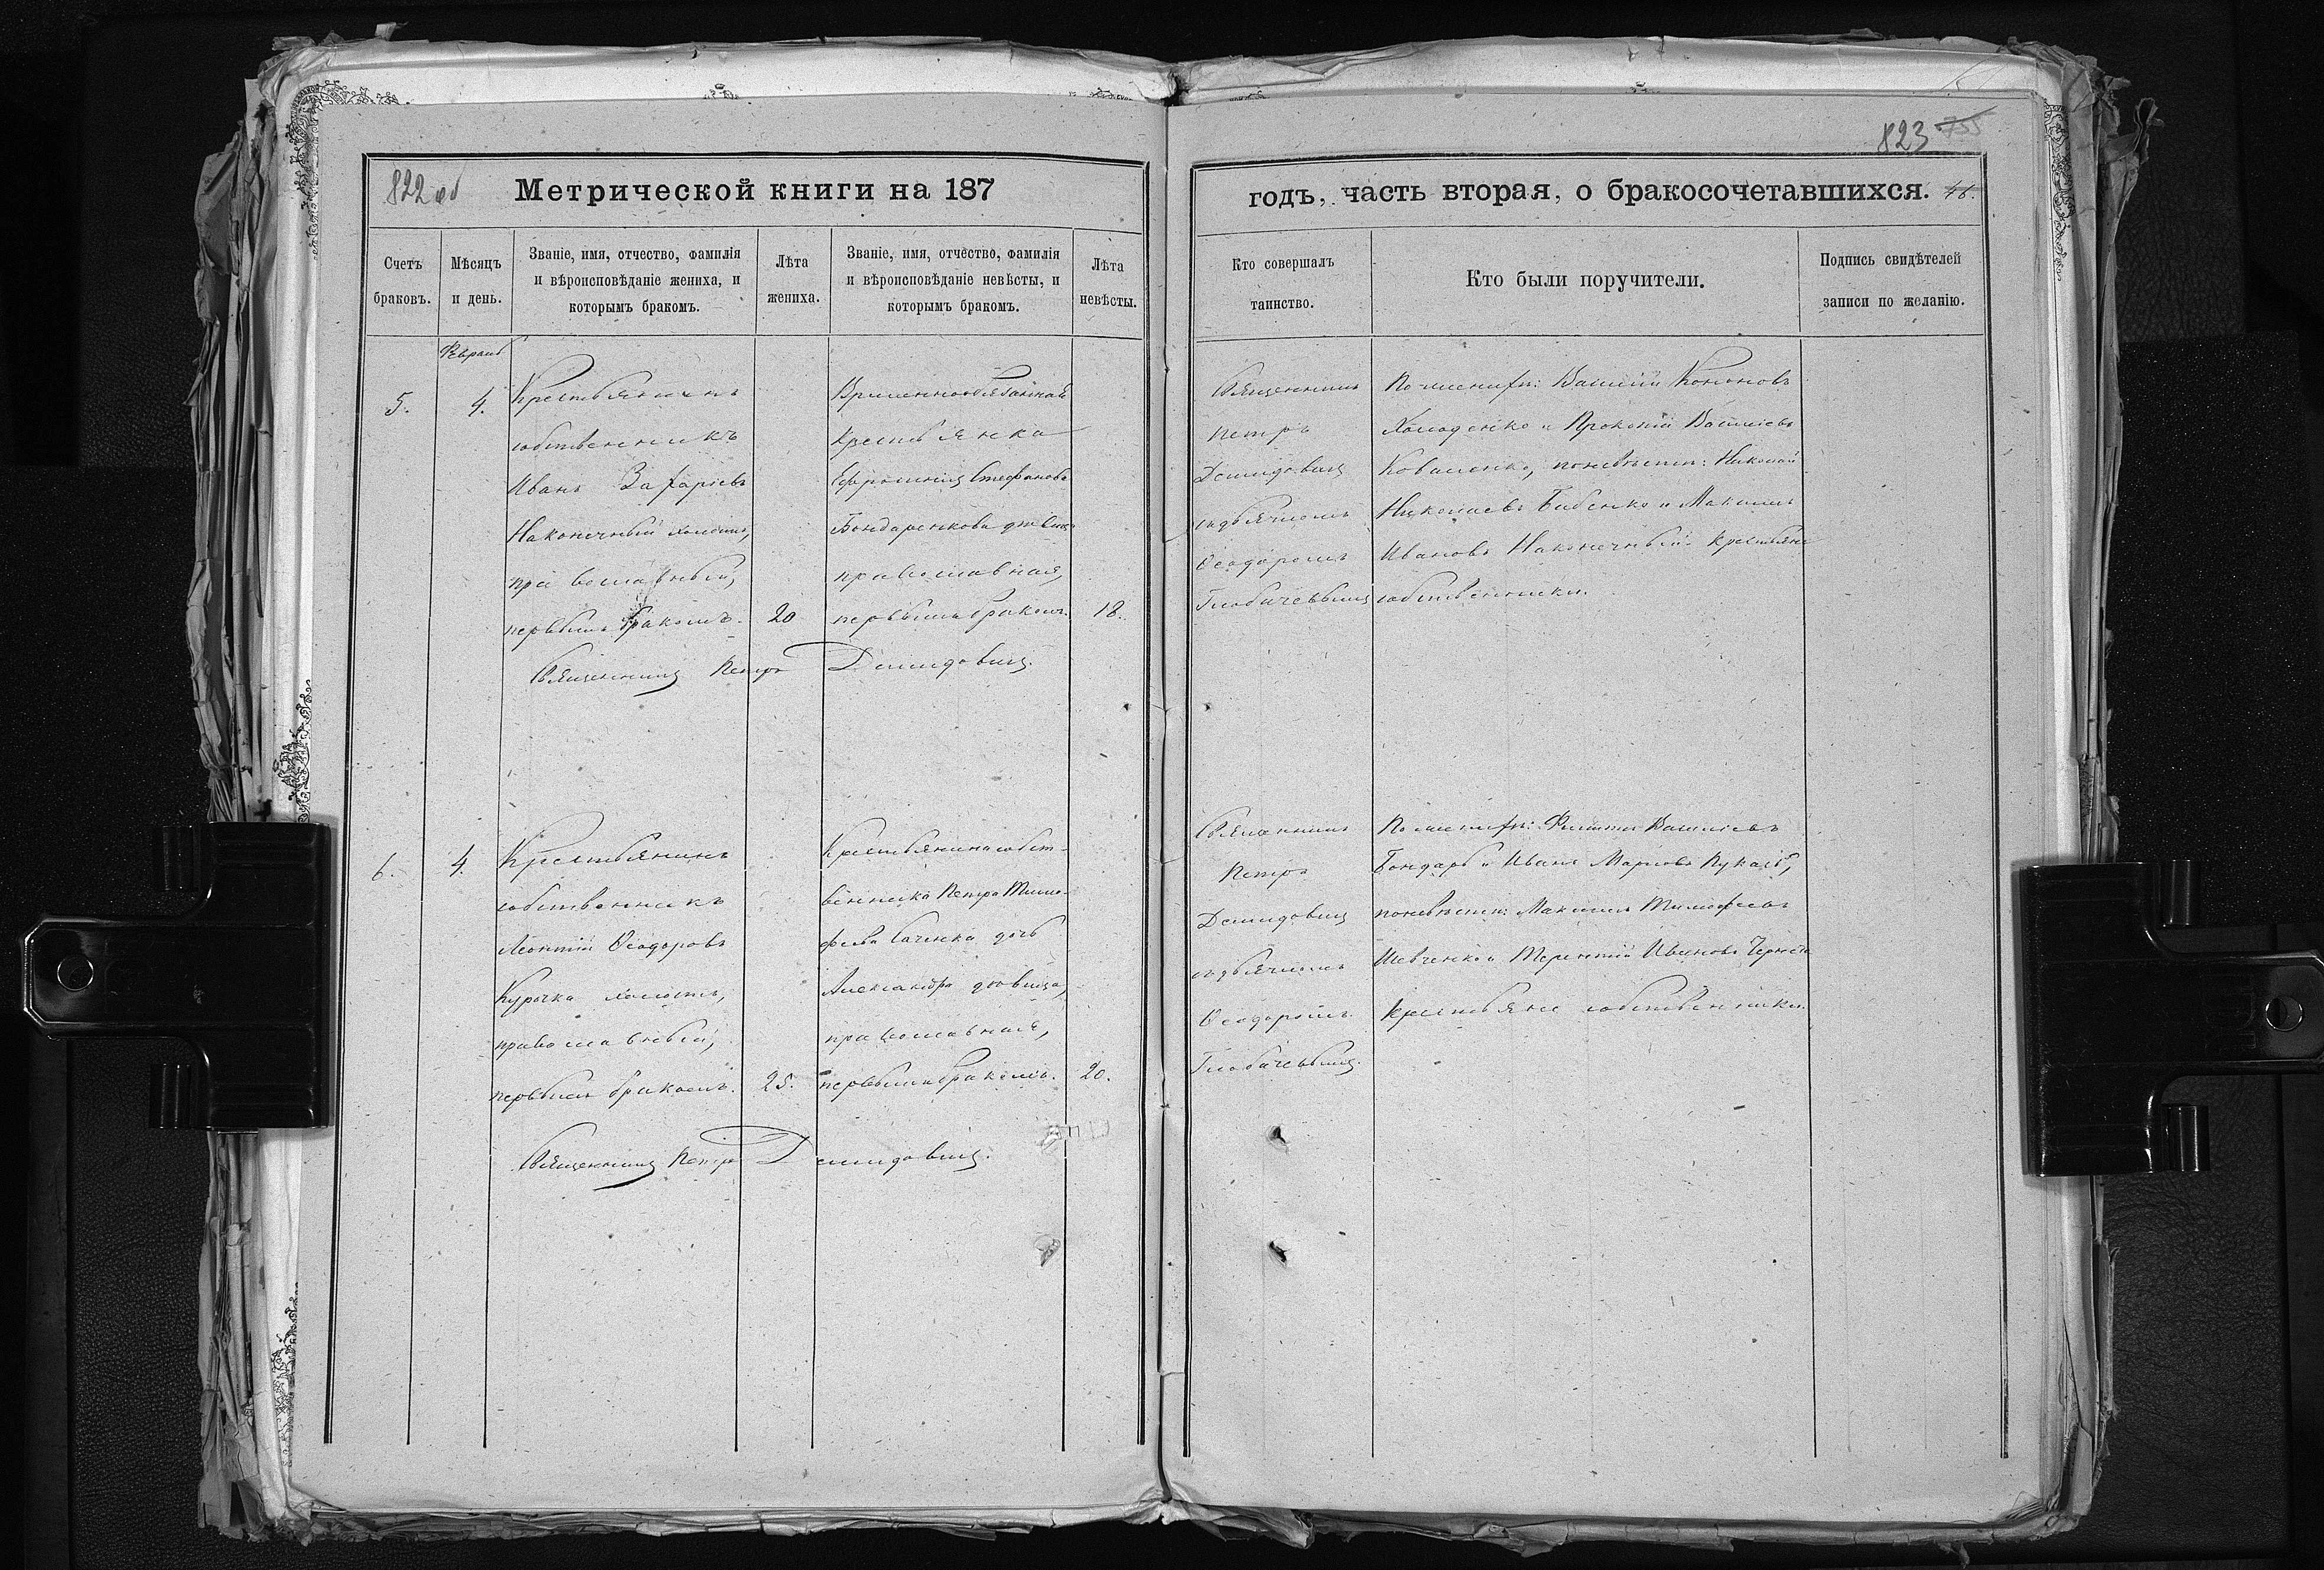 823 755
822 об
Метрической книги на 187
годъ, часть вторая, о бракосочетавшихся. 48.
Счетъ браковъ.
Мѣсяцъ и день.
Званіе, имя, отчество, фамилія
и вѣроисповѣданіе жениха, и
которымъ бракомъ.
Лѣта
жениха.
Званіе, имя, отчество, фамилія
и вѣроисповѣданіе невѣсты, и
которымъ бракомъ.
Лѣта
невѣсты.
Кто совершалъ
таинство.
Кто были поручители.
Подпись свидѣтелей
записи по желанію.
5.
4.
Крестьянинъ
собственникъ
Иванъ Захаріевъ
Наконечный холостъ,
православный,
первымъ бракомъ.
20
Временнообязанная
крестьянка
Стефанова
Бондаренкова дѣвица
православная,
первымъ бракомъ.
18.
Священникъ Петръ Демидовичъ.
Священникъ
Петръ
Демидовичъ
съ дьячкомъ
Ѳеодоромъ
По женихѣ: Василій Кононовъ
Холоденко и Прокопій Василіевъ
Коваленко, по невѣстѣ: Николай
Николаевъ Бабенко и Максимъ
Ивановъ Наконечный крестьяне
собственники.
6.
4.
Крестьянинъ
собственникъ
Леонтій Ѳеодоровъ
Курочка холостъ,
православный,
первымъ бракомъ.
25.
Крестьянина собст-
венника Петра Тимо-
дочь
Александра дѣвица,
православная,
первымъ бракомъ.
20.
Священникъ Петръ Демидовичъ.
Священникъ
Петръ
Демидовичъ
съ дьячкомъ
Ѳеодоромъ
По женихѣ: Филиппъ Василіевъ
Бондарь и Иванъ Марковъ
по невѣстѣ: Максимъ Тимофеевъ
Шевченко и Терентій Ивановъ
крестьяне собственники.